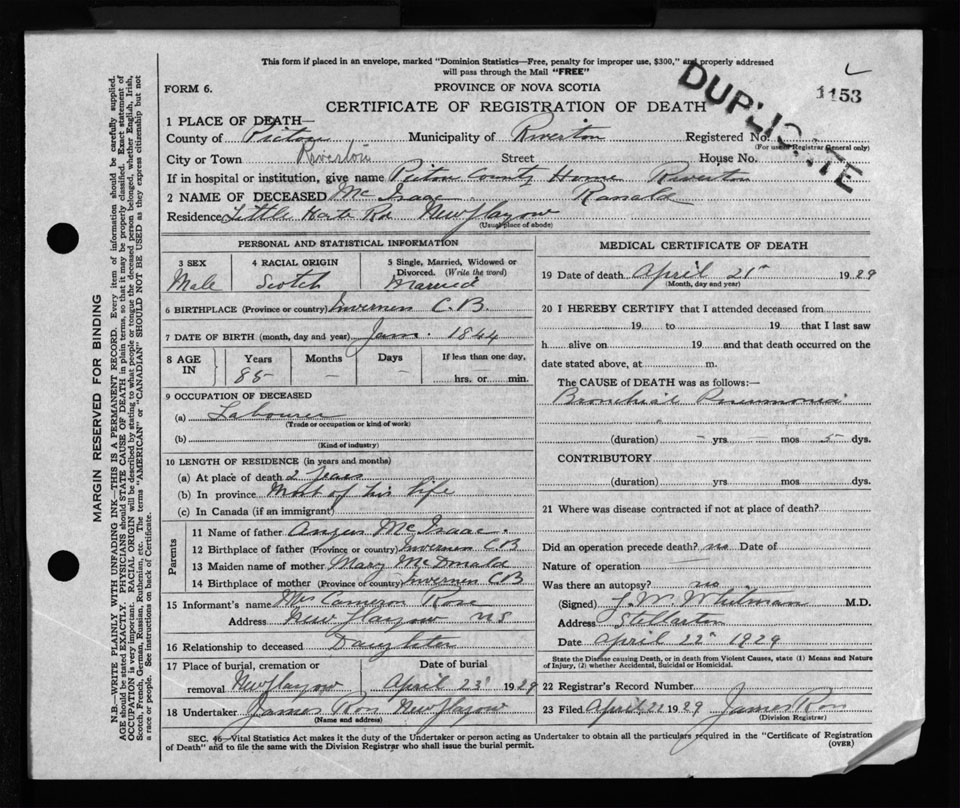 This form if placed in an envelope, marked "Dominion Statistics—Free, penalty for improper use, $300," and properly addressed
will pass through the Mail "FREE"
FORM 6.
PROVINCE OF NOVA SCOTIA
1153
CERTIFICATE OF REGISTRATION OF DEATH
DUPLICATE
1 PLACE OF DEATH—
County of Pictou Municipality of Riverton Registered No.
(For use of Registrar General only)
City or Town Riverton Street House No.
If in hospital or institution, give name Picton County Home Riverton
2 NAME OF DECEASED Mc Isaac Ranald
Residence Little Harb Rd New Glasgow
(Usual place of abode)
PERSONAL AND STATISTICAL INFORMATION
3 SEX 4 RACIAL ORIGIN 5 Single, Married, Widowed or Divorced. (Write the word)
Male Scotch Married
6 BIRTHPLACE (Province or country) Inverness C.B.
7 DATE OF BIRTH (month, day and year) Jan. 1844
8 AGE IN Years Months Days If less than one day,
85 — — hrs. or min.
9 OCCUPATION OF DECEASED
(a) Labourer
(Trade or occupation or kind of work)
(b)
(Kind of industry)
10 LENGTH OF RESIDENCE (in years and months)
(a) At place of death 2 years
(b) In province Most of his life
(c) In Canada (if an immigrant)
Parents
11 Name of father Angus McIsaac.
12 Birthplace of father (Province or country) Inverness CB
13 Maiden name of mother Mary McDonald
14 Birthplace of mother (Province or country) Inverness CB
15 Informant's name Mrs Cameron Rose
Address New Glasgow NS
16 Relationship to deceased Daughter
17 Place of burial, cremation or Date of burial
removal New Glasgow April 23 1929
18 Undertaker James Ross New Glasgow
(Name and address)
MEDICAL CERTIFICATE OF DEATH
19 Date of death April 21st 1929
(Month, day and year)
20 I HEREBY CERTIFY that I attended deceased from
19 to 19 that I last saw
h alive on 19 and that death occurred on the
date stated above, at m.
The CAUSE of DEATH was as follows:—
Bronchial Pneumonia
(duration) — yrs — mos 5 dys.
CONTRIBUTORY
(duration) yrs. mos. dys.
21 Where was disease contracted if not at place of death?
Did an operation precede death? no Date of
Nature of operation
Was there an autopsy? no.
(Signed) J. W. Whitman M.D.
Address Stellarton
Date April 22nd 1929
State the Disease causing Death, or in death from Violent Causes, state (1) Means and Nature
of Injury, (2) whether Accidental, Suicidal or Homicidal.
22 Registrar's Record Number
23 Filed April 22 1929 James Ross
(Division Registrar)
SEC. 46—Vital Statistics Act makes it the duty of the Undertaker or person acting as Undertaker to obtain all the particulars required in the "Certificate of Registration
of Death" and to file the same with the Division Registrar who shall issue the burial permit. (OVER)
MARGIN RESERVED FOR BINDING
N.B.—WRITE PLAINLY WITH UNFADING INK—THIS IS A PERMANENT RECORD. Every item of information should be carefully supplied.
AGE should be stated EXACTLY. PHYSICIANS should STATE CAUSE OF DEATH in plain terms, so that it may be properly classified. Exact statement of
OCCUPATION is very important. RACIAL ORIGIN will be described by stating to what people or tongue the deceased person belonged, whether English, Irish,
Scotch, French, German, Russian, Ruthenian, etc. The terms "AMERICAN" or "CANADIAN" SHOULD NOT BE USED as they express citizenship but not
a race or people. See instructions on back of Certificate.